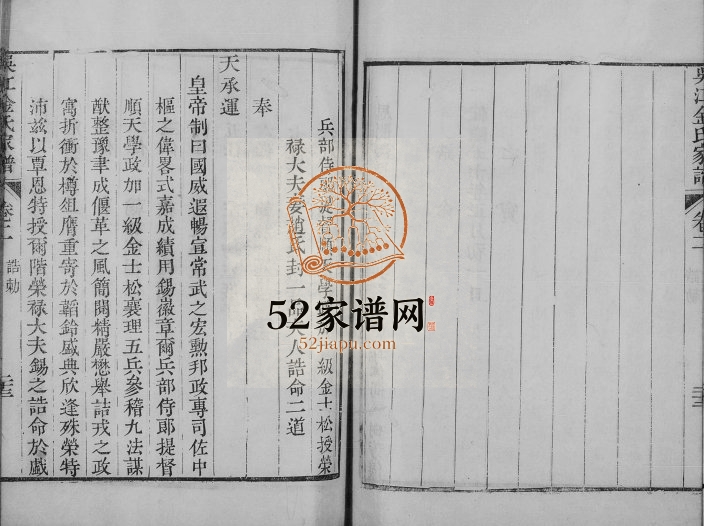 吳江金氏家譜
卷二
兵部侍郎提督順天學政加一級金士松授榮
祿大夫妻趙氏封一品夫人誥命二道
奉
天承運
皇帝制曰國威遐暢宣常武之宏勲邦政專司佐中
樞之偉畧式嘉成績用錫徽章爾兵部侍郎提督
順天學政加一級金士松襄理五兵參稽九法謀
猷整豫聿成偃革之風簡閱精嚴懋舉詰戎之政
寓折衝於樽俎膺重寄於韜鈴盛典欣逢殊榮特
沛兹以覃恩特授爾階榮祿大夫錫之誥命於戲
吳江金氏家譜
卷二
誥勅
二十三
52家谱网
52jiapu.com